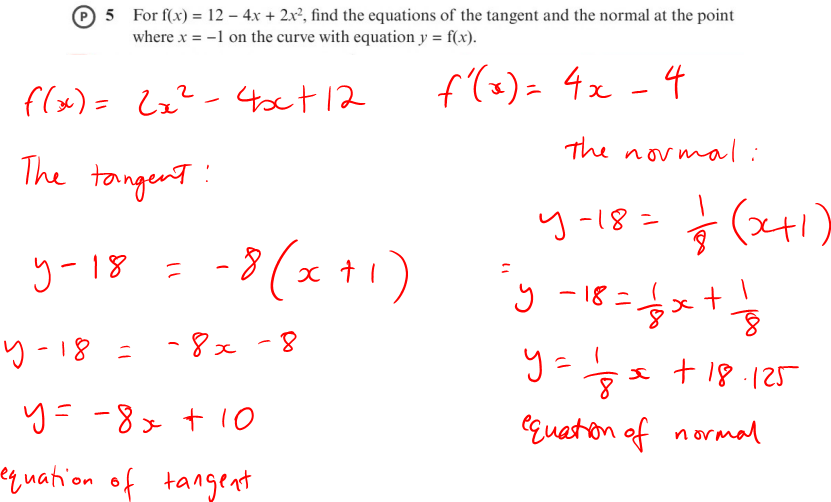 P 5 For f(x) = 12 – 4x + 2x², find the equations of the tangent and the normal at the point
where x = –1 on the curve with equation y = f(x).
f(x) = 2x² - 4x + 12
f'(x) = 4x - 4
The tangent :
y - 18 = -8(x + 1)
y - 18 = -8x - 8
y = -8x + 10
equation of tangent
The normal :
y - 18 = 1/8 (x+1)
= y - 18 = 1/8 x + 1/8
y = 1/8 x + 18.125
equation of normal